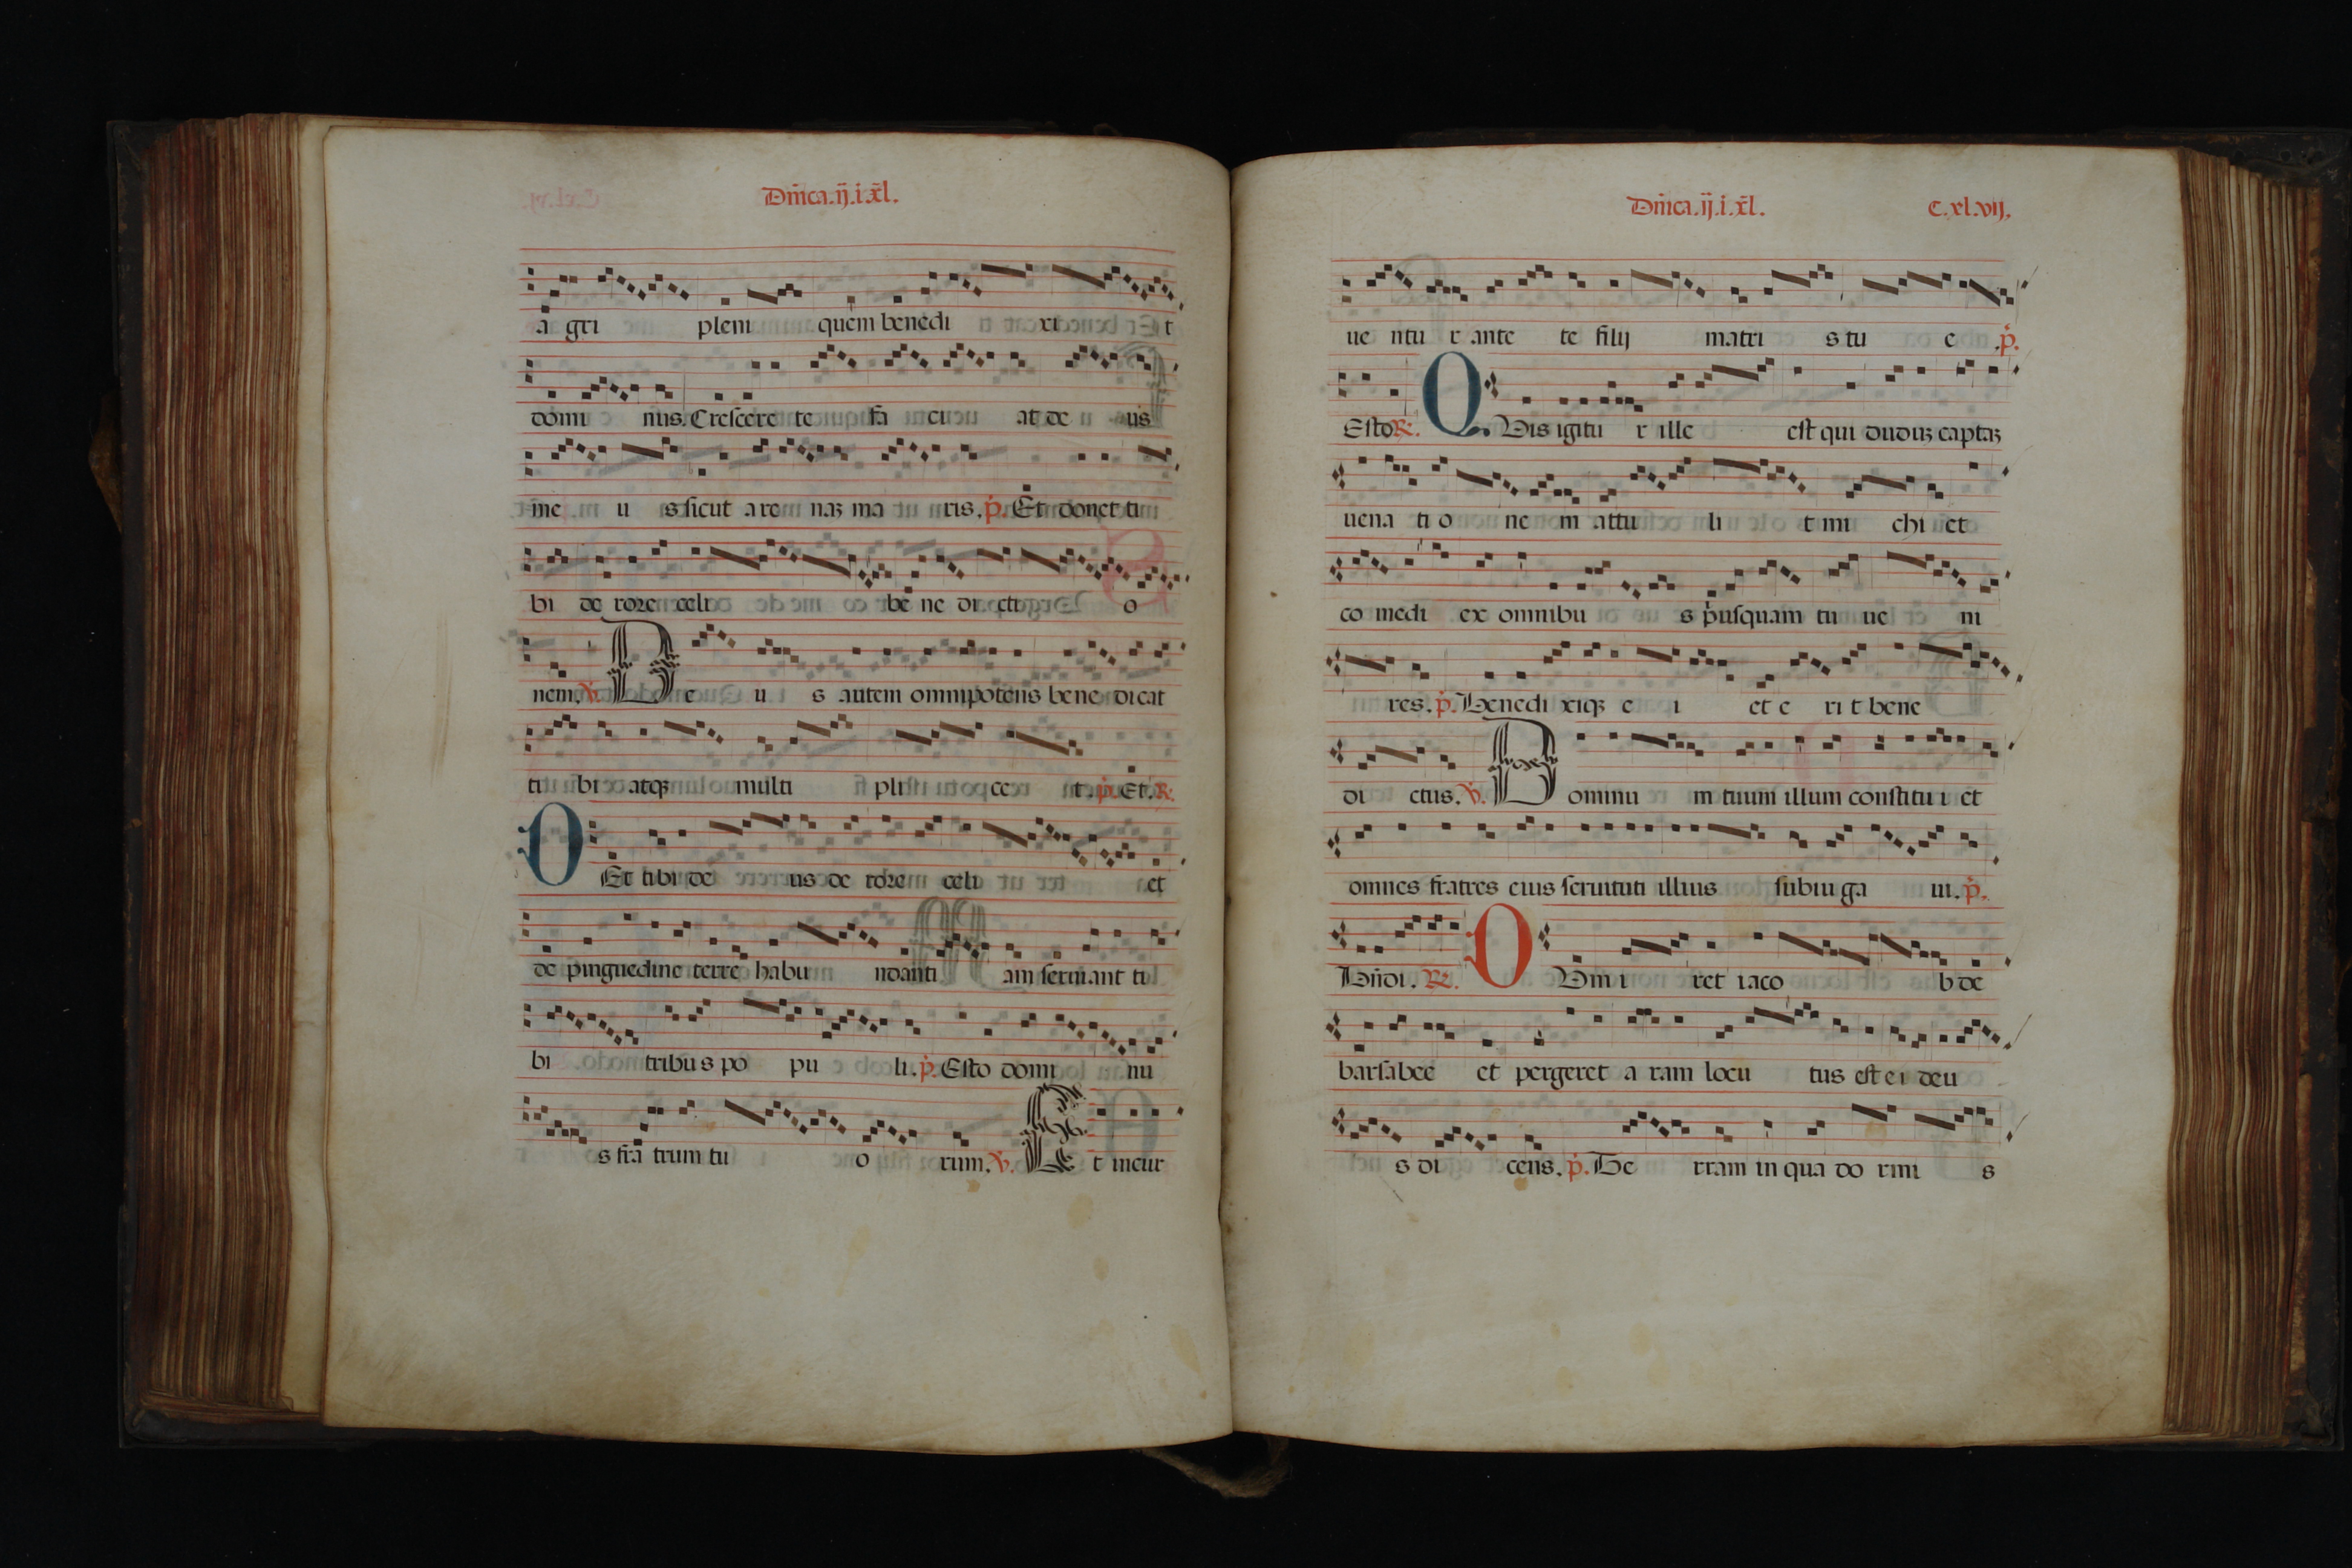 Dñica.ij.i.xl.
a gri pleni quem benedi xi t
domi nus. Crescere te fa ci at de us
me u s sicut arenaʒ ma ris. p̉. Et donet ti
bi de rore celi be ne di cti o
nem. V̉. De u s autem omnipotens bene dicat
ti bi atqʒ multi pli ce t. p̉. Et. R.
Det tibi de us de rore celi et
de pinguedine terre habu ndanti am seruiant ti
bi tribus po pu li. p̉. Esto domi nu
s fra trum tu o rum. V̉. Et incur
Dñica.ij.i.xl. C.xl.vij.
ue ntu r ante te filij matri s tu e .p̉.
Esto R. Quis igitu r ille est qui duduʒ captaʒ
uena ti o ne m attu li t mi chi et
co medi ex omnibu s pͥusquam tu ue ni
res. p̉. Benedi xiqʒ e i et e ri t bene
di ctus. V̉. Dominu m tuum illum constitu i et
omnes fratres eius seruituti illius subiu ga ui. p̉.
Bñdi. R. Dum i ret iaco b de
barsabee et pergeret aram locu tus est ei deu
s di cens. p̉. Te rram in qua do rmi s